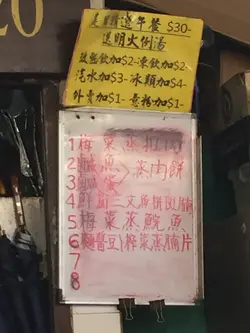 20
美味精選午餐 $30-
送明火例湯
熱飲加$2- 凍飲加$2-
汽水加$3- 冰類加$4-
外賣加$1- 意粉加$1-
1 梅菜蒸扣肉
2 鹹魚 蒸肉餅
3 鹹蛋
4 三文魚拼
5 梅菜蒸鯇魚
6 豆 榨菜蒸 片
7
8